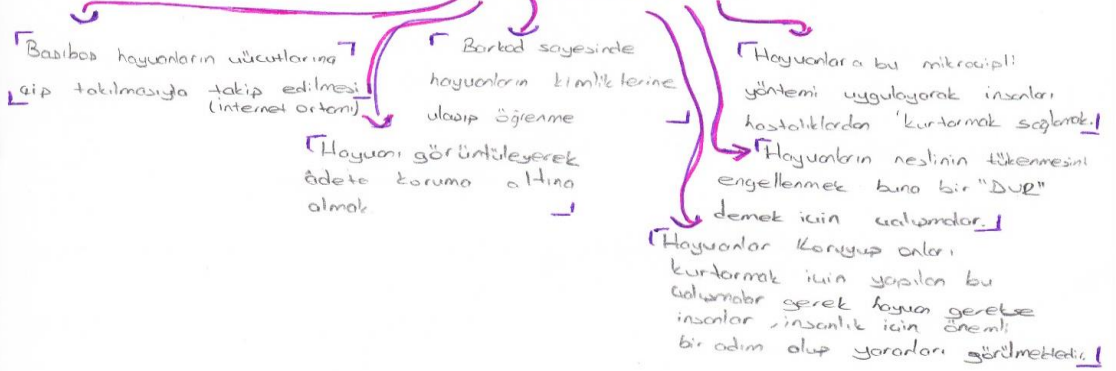 Başıboş hayvanların vücutlarına
çip takılmasıyla takip edilmesi
(internet ortamı)
Hayvanı görüntüleyerek
âdeta koruma altına
almak
Barkod sayesinde
hayvanların kimliklerine
ulaşıp öğrenme
Hayvanlara bu mikroçipli
yöntemi uygulayarak insanları
hastalıklardan kurtarmak sağlamak.
Hayvanların neslinin tükenmesini
engellenmek buna bir "DUR"
demek için çalışmalar.
Hayvanlar koruyup onları
kurtarmak için yapılan bu
çalışmalar gerek hayvan gerekse
insanlar, insanlık için önemli
bir adım olup yararları görülmektedir.